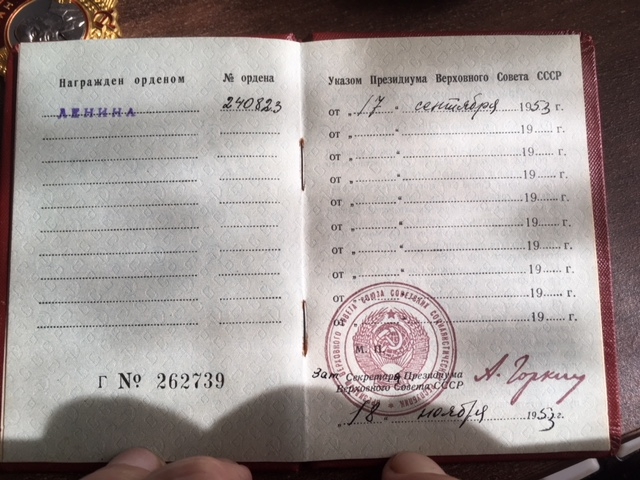 Награжден орденом № ордена
ЛЕНИНА 240823
Г № 262739
Указом Президиума Верховного Совета СССР
от „ 17 “ сентября 1953 г.
от „ “ 19 г.
от „ “ 19 г.
от „ “ 19 г.
от „ “ 19 г.
от „ “ 19 г.
от „ “ 19 г.
от „ “ 19 г.
от „ “ 19 г.
от „ “ 19 г.
М. П.
Зам Секретаря Президиума
Верховного Совета СССР
А. Горкин
„ 18 “ ноября 1953 г.